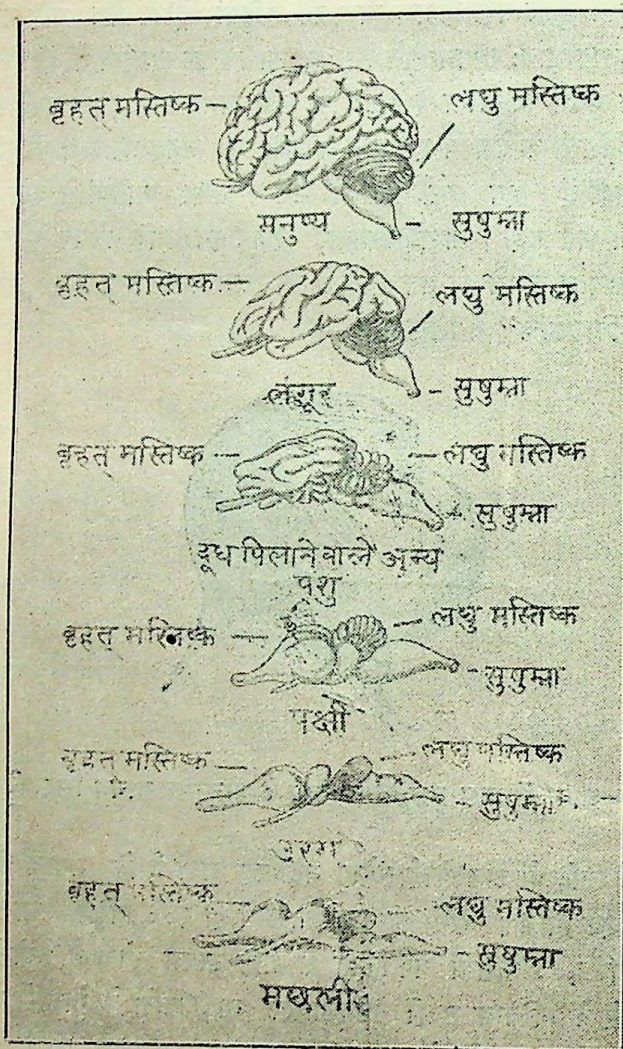 बृहत् मस्तिष्क
लघु मस्तिष्क
मनुष्य
सुषुम्ना
बृहत् मस्तिष्क
लघु मस्तिष्क
लंगूर
सुषुम्ना
बृहत् मस्तिष्क
लघु मस्तिष्क
सुषुम्ना
दूध पिलाने वाले अन्य
पशु
बृहत् मस्तिष्क
लघु मस्तिष्क
सुषुम्ना
पक्षी
बृहत् मस्तिष्क
लघु मस्तिष्क
सुषुम्ना
उरग
बृहत् मस्तिष्क
लघु मस्तिष्क
सुषुम्ना
मछली